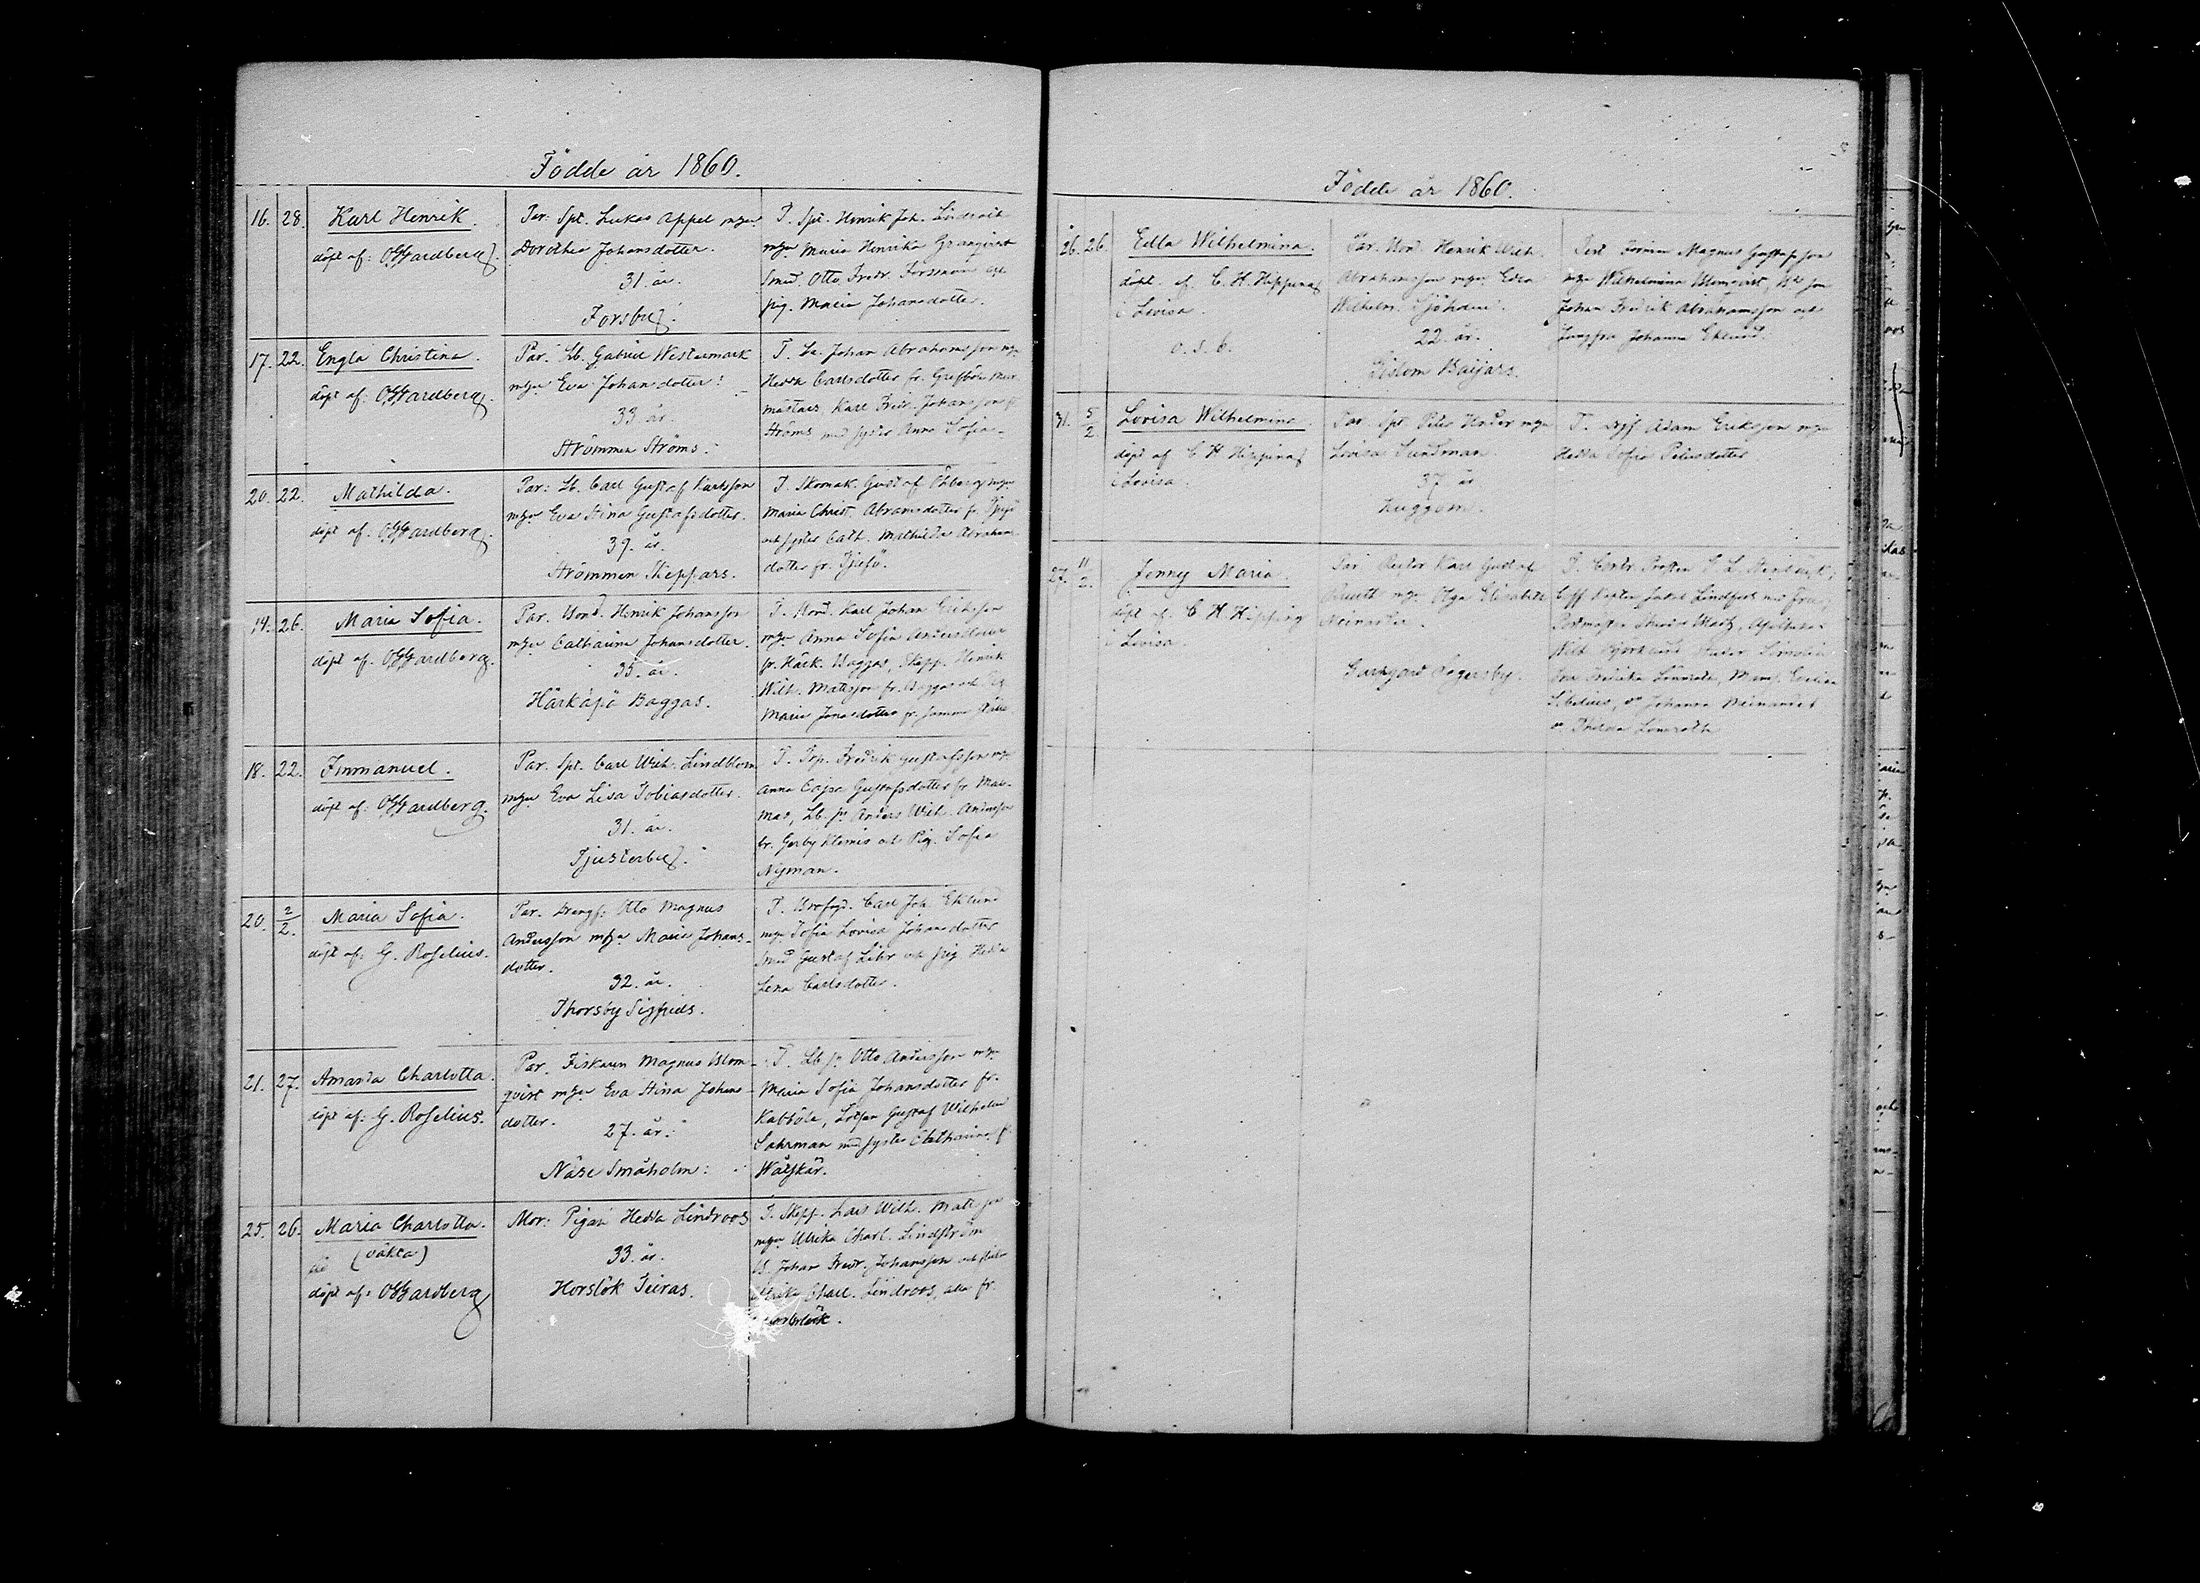 Födde år 1860.
16. 28. Karl Henrik.
döpt af: OGardberg.
Par: Spt. Lukas Appel m hu
Dorothea Johansdotter.
31 år.
Forsby.
T. Spt. Henrik Joh. Lindroth
m hu Maria Henrika Granqvist
Smed. Otto Fredr. Forssman och
pig. Maria Johansdotter.
17. 22. Engla Christina.
döpt af: OGardberg.
Par: Lb. Gabriel Westermark
m hu Eva Johansdotter.
33 år.
Strömmen Ströms.
T. Johan Abrahamsson
Hedda Carlsdotter fr.
Karl Fredr. Johansson
Ströms med syster Anna Sofia
20. 22. Mathilda.
döpt af: OGardberg.
Par: Lb. Carl Gustaf Karlsson
m hu Eva Stina Gustafsdotter.
39. år.
Strömmen Skeppars.
T. Skomak. Gustaf Öhberg
Maria Christ. Abramsdotter fr.
och syster Cath. Mathilda Abraham
dotter fr.
14. 26. Maria Sofia.
döpt af: OGardberg.
Par. Bond. Henrik Johansson
m hu Catharina Johansdotter.
35. år.
Härkäpä Baggas.
T. Bond. Karl Johan Eriksson
m hu Anna Sofia Andersdotter
fr. Härk. Baggas, Skepp. Henrik
Wilh. Matsson fr. Baggas och
Maria Jonasdotter fr. samma ställe
18. 22. Immanuel.
döpt af: OGardberg.
Par. Spt. Carl Wilh. Lindblom
m hu Eva Lisa Tobiasdotter.
31. år.
Tjusterby.
T. Trp. Fredrik Gustafsson
Anna Cajsa Gustafsdotter fr.
Lb. sn Anders Wilh. Andersson
fr. Gerby Klemis och Pig. Sofia
Nyman.
20. 2/2. Maria Sofia.
döpt af: G. Roselius.
Par. Drengs: Otto Magnus
Andersson m hu Maria Johans-
dotter.
32. år.
Thorsby Sigfrids.
T. Brofogd. Carl Joh. Eklund
Sofia Lovisa Johansdotter
Smed Gustaf och pig. Hedda
Lena Carlsdotter.
21. 27. Amanda Charlotta.
döpt af: G. Roselius.
Par. Fiskaren Magnus Blom-
qvist m hu Eva Stina Johans-
dotter.
27. år.
Näse Småholm:
T. Lb. sn Otto Andersson
Maria Sofia Johansdotter fr.
Kabböle, Lotsen Gustaf Wilhelm
med syster Catharina
Wålskär.
25. 26. Maria Charlotta.
(oäkta)
döpt af: OGardberg
Mor: Pigan Hedda Lindroos
33. år.
Horslök Teiras.
T. Skepp. Lars Wilh. Matsson
m hu Ulrika Charl. Lindström
Johan Fredr. Johansson och
Ulrika Charl. Lindroos, alla fr.
Födde år 1860.
26. 26. Edla Wilhelmina.
döpt af C. H. Hipping
i Lovisa.
o. s. b.
Par. Bond. Henrik Wilh.
Abrahamsson m hu Edla
Wilhelm. Sjöholm.
22 år.
Baijars.
Test Magnus Gustafsson
m hu Wilhelmina Blomqvist,
Johan Fredrik Abrahamsson och
Jungfru Johanna Eklund.
31. 5/2. Lovisa Wilhelmina.
döpt af C H Hipping
i Lovisa.
Par. Spt Peter m hu
Lovisa Sundman
37 år
Kuggom.
T. Adam Eriksson m hu
Hedda Sofia Petersdotter
27. 11/2. Jenny Maria.
döpt af. C H Hipping
i Lovisa
Par. Rector Karl Gustaf
m hu Olga Elisabeth
T.
Jakob Lindfors med fru
Postmästar
Wilh. Björklund
Fredrika Lönnroth,
Johanna
Lönnroth